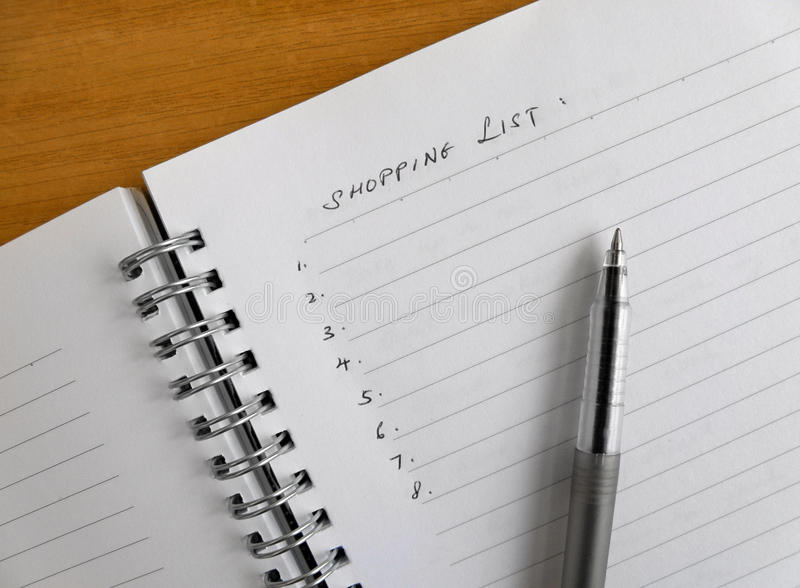 SHOPPING LIST :
1.
2.
3.
4.
5.
6.
7.
8.
dreamstime